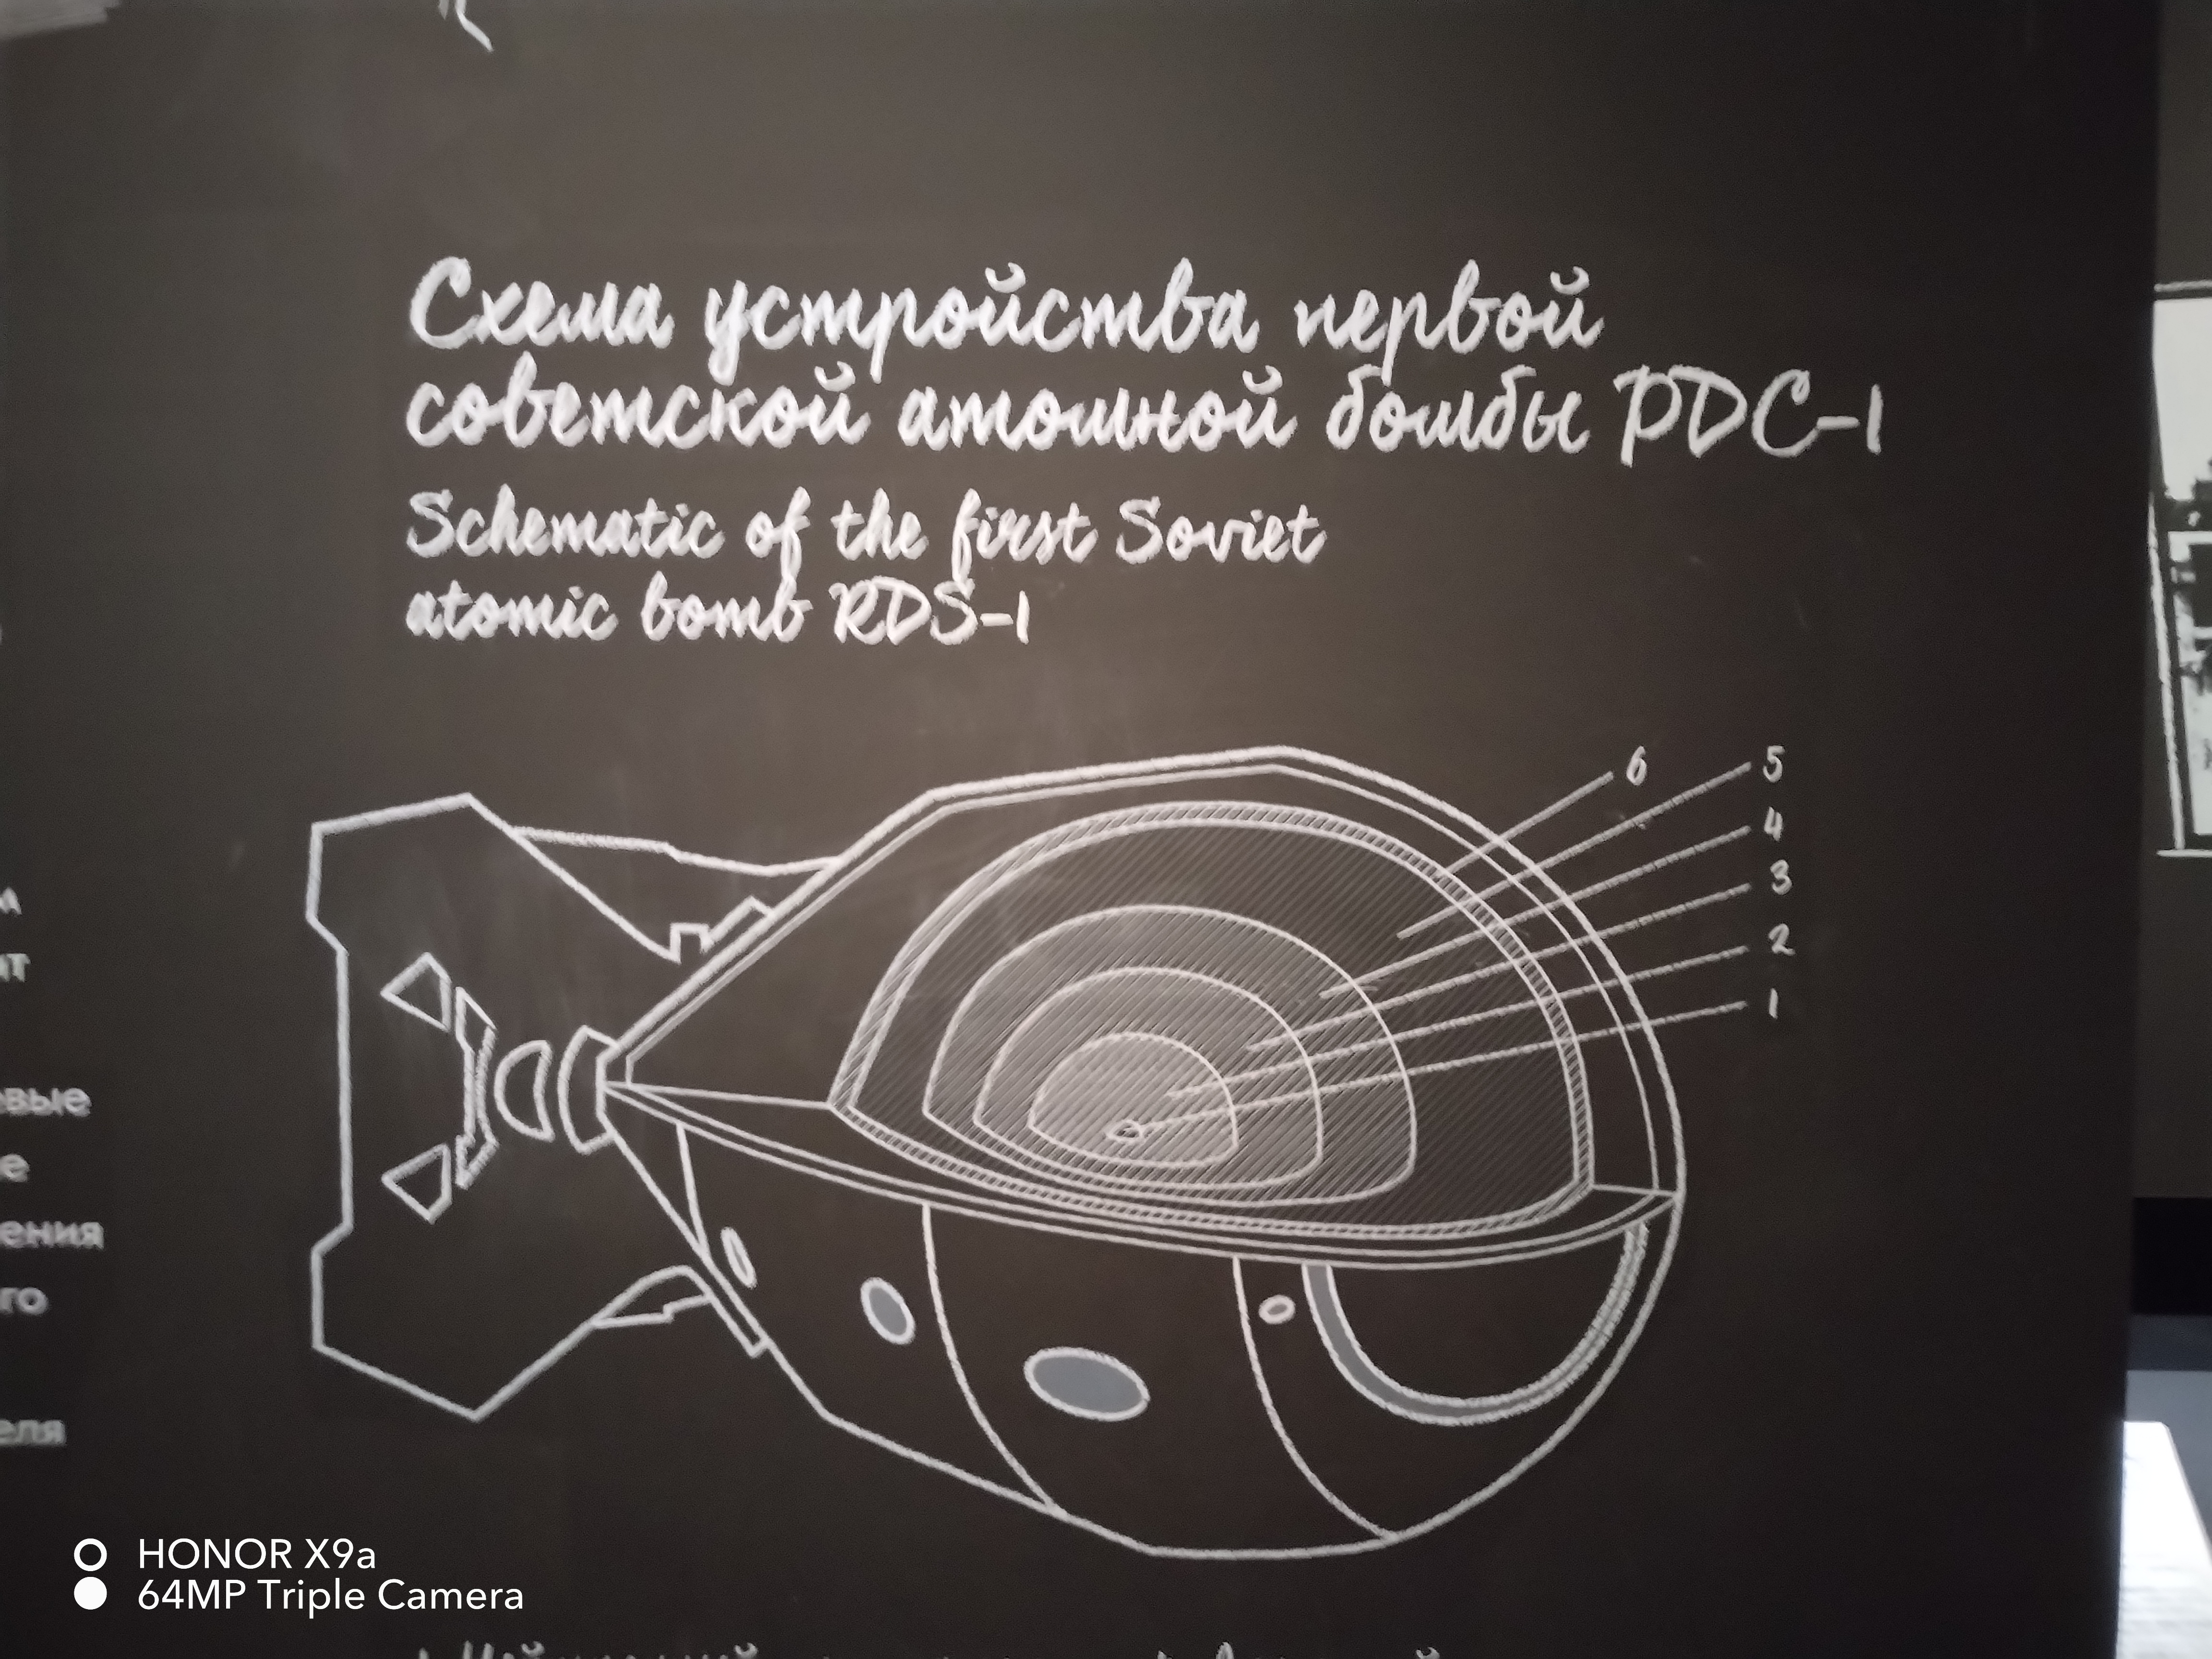 Схема устройства первой
советской атомной бомбы РДС-1
Schematic of the first Soviet
atomic bomb RDS-1
6
5
4
3
2
1
евые
ения
го
еля
HONOR X9a
64MP Triple Camera